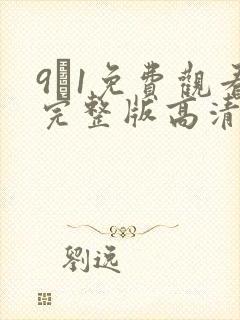 9 1免費觀看
完整版高清
劉遠